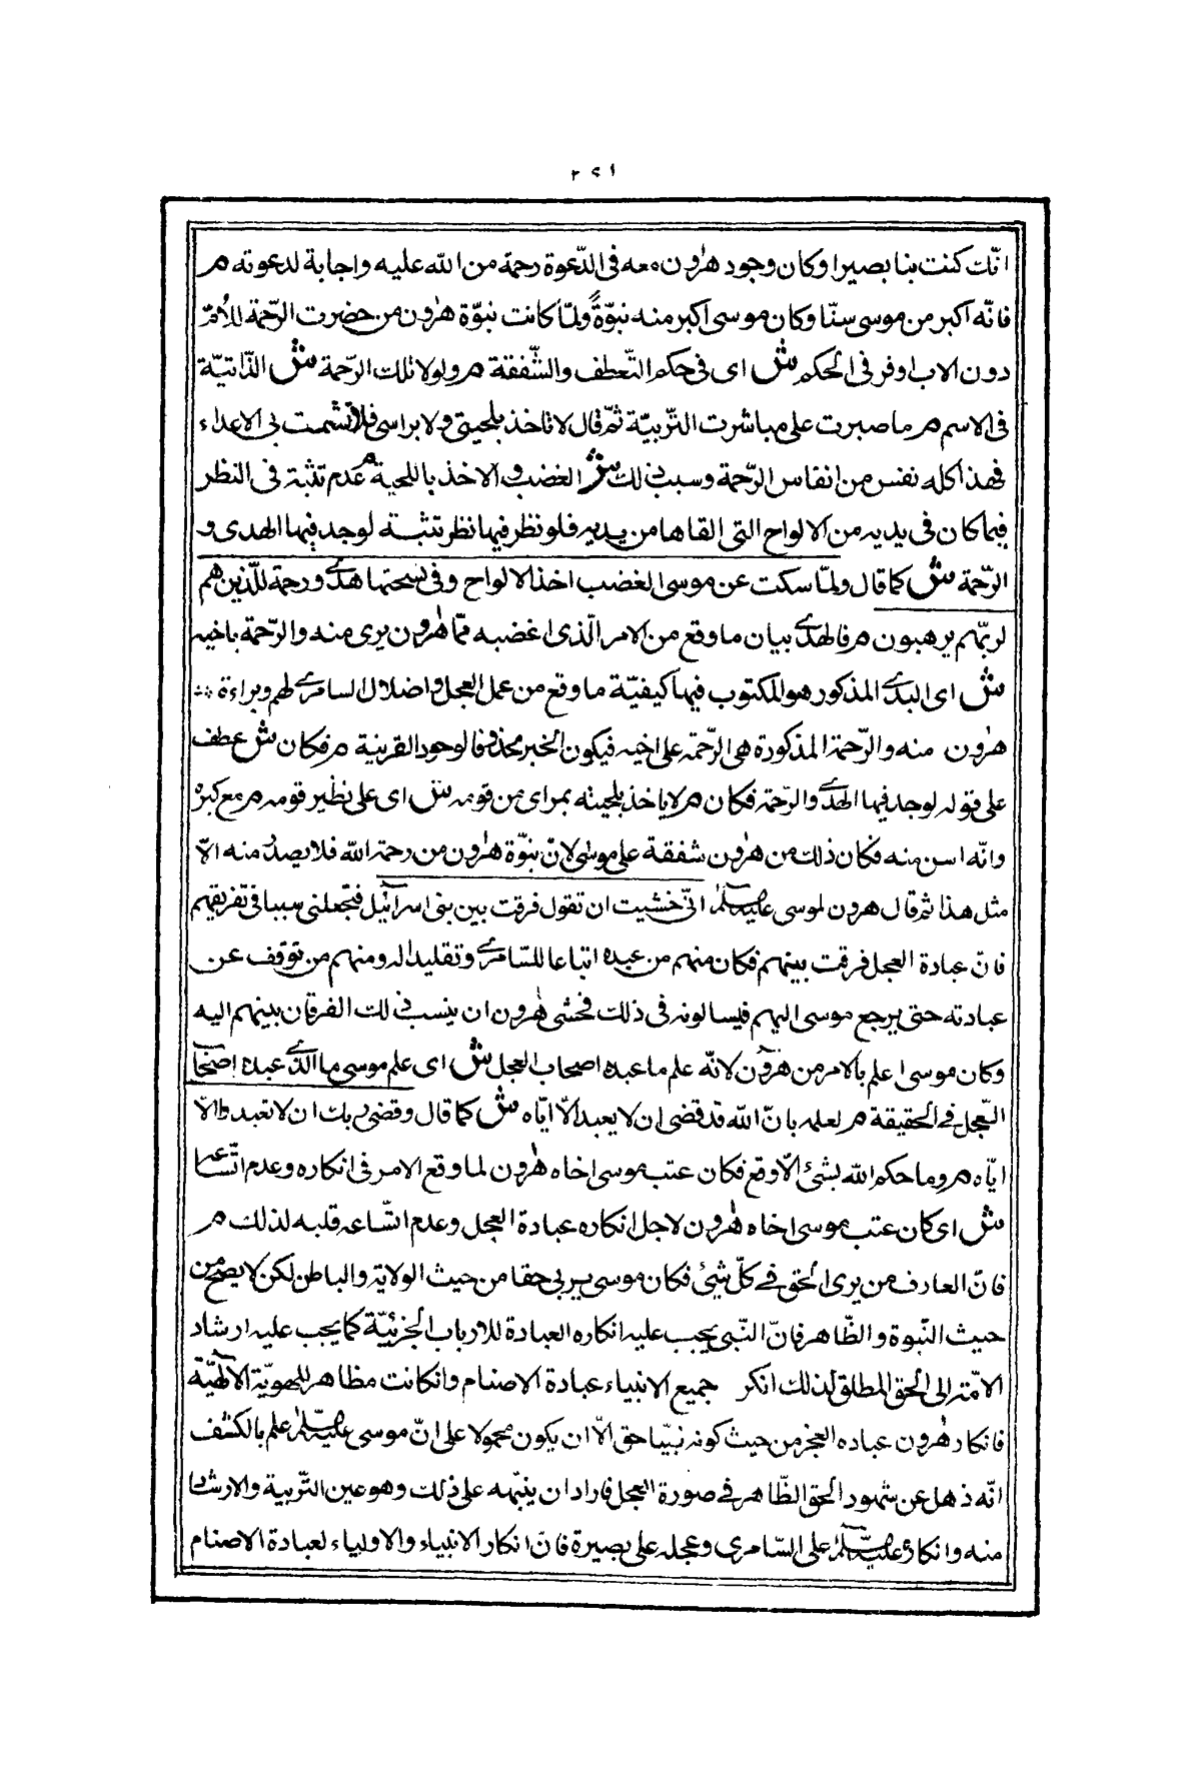 ٢٩١
انّك كنت بنا بصيرا وكان وجود هرون معه فى الدّعوة رحمة من الله عليه واجابة لدعوته م
فانّه اكبر من موسى سنّا وكان موسى اكبر منه نبوّةً ولمّا كانت نبوّة هرون من حضرت الرّحمة للأمّ
دون الاب اوفر فى الحكم ش اى فى حكم التّعطف والشّفقة م ولولا تلك الرّحمة ش الذّاتيّة
فى الاسم م ما صبرت على مباشرت التّربيّة ثمّ قال لا تاخذ بلحيتى ولا براسى فلا تشمت بى الاعداء
فهذا كله نفس من انفاس الرّحمة وسبب ذلك ش الغضب والاخذ باللحية م عدم تثبّة فى النظر
فيما كان فى يديه من الالواح التى القاها من يديه فلو نظر فيها نظر تثبّته لوجد فيها الهدى و
الرّحمة ش كما قال ولمّا سكت عن موسى الغضب اخذ الالواح وفى نسختها هدى ورحمة للّذين هم
لربّهم يرهبون م فالهدى بيان ما وقع من الامر الّذى اغضبه ممّا هرون برى منه والرّحمة باخيه
ش اى الهدى المذكور هو المكتوب فيها كيفيّة ما وقع من عمل العجل واضلال السامرى لهم وبراءة
هرون منه والرّحمة المذكورة هى الرّحمة على اخيه فيكون الخبر محذوفا لوجود القرينة م فكان ش عطف
على قوله لوجد فيها الهدى والرّحمة فكان م لا ياخذ بلحيته بمراى من قومه ش اى على نظير قومه م مع كبره
وانّه اسن منه فكان ذلك من هرون شفقة على موسى لانّ نبوّة هرون من رحمة الله فلا يصدر منه الاّ
مثل هذا ثم قال هرون لموسى عليه السلام انّى خشيت ان تقول فرقت بين بنى اسرائيل فتجعلنى سببا فى تفريقهم
فانّ عبادة العجل فرقت بينهم فكان منهم من عبده اتباعا للسّامرى وتقليدا له ومنهم من توقف عن
عبادته حتى يرجع موسى اليهم فيسالونه فى ذلك فخشى هرون ان ينسب ذلك الفرقان بينهم اليه
وكان موسى اعلم بالامر من هرون لانّه علم ما عبده اصحاب العجل ش اى علم موسى ما الذى عبده اصحاب
العجل فى الحقيقة م لعلمه بانّ الله قد قضى ان لا يعبد الاّ ايّاه ش كما قال وقضى ربك ان لا تعبدوا الاّ
ايّاه م وما حكم الله بشئ الاّ وقع فكان عتب موسى اخاه هرون لما وقع الامر فى انكاره وعدم اتّساعه
ش اى كان عتب موسى اخاه هرون لاجل انكاره عبادة العجل وعدم اتّساع قلبه لذلك م
فانّ العارف من يرى الحق فى كلّ شئ فكان موسى يربى حقا من حيث الولاية والباطن لكن لا يصح من
حيث النّبوة والظّاهر فانّ النّبى يجب عليه انكاره العبادة للارباب الجزئيّة كما يجب عليه ارشاد
الامّة الى الحق المطلق لذلك انكر جميع الانبياء عبادة الاصنام وانكانت مظاهر للهويّة الآلهيّة
فانكار هرون عباده العجل من حيث كونه نبيّا حق الاّ ان يكون محمولا على انّ موسى عليه السلام علم بالكشف
انّه ذهل عن شهود الحق الظّاهر فى صورة العجل فاراد ان ينبّهه على ذلك وهو عين التّربية والارشاد
منه وانكاره عليه السلام على السّامرى وعجله على بصيرة فانّ انكار الانبياء والاولياء لعبادة الاصنام